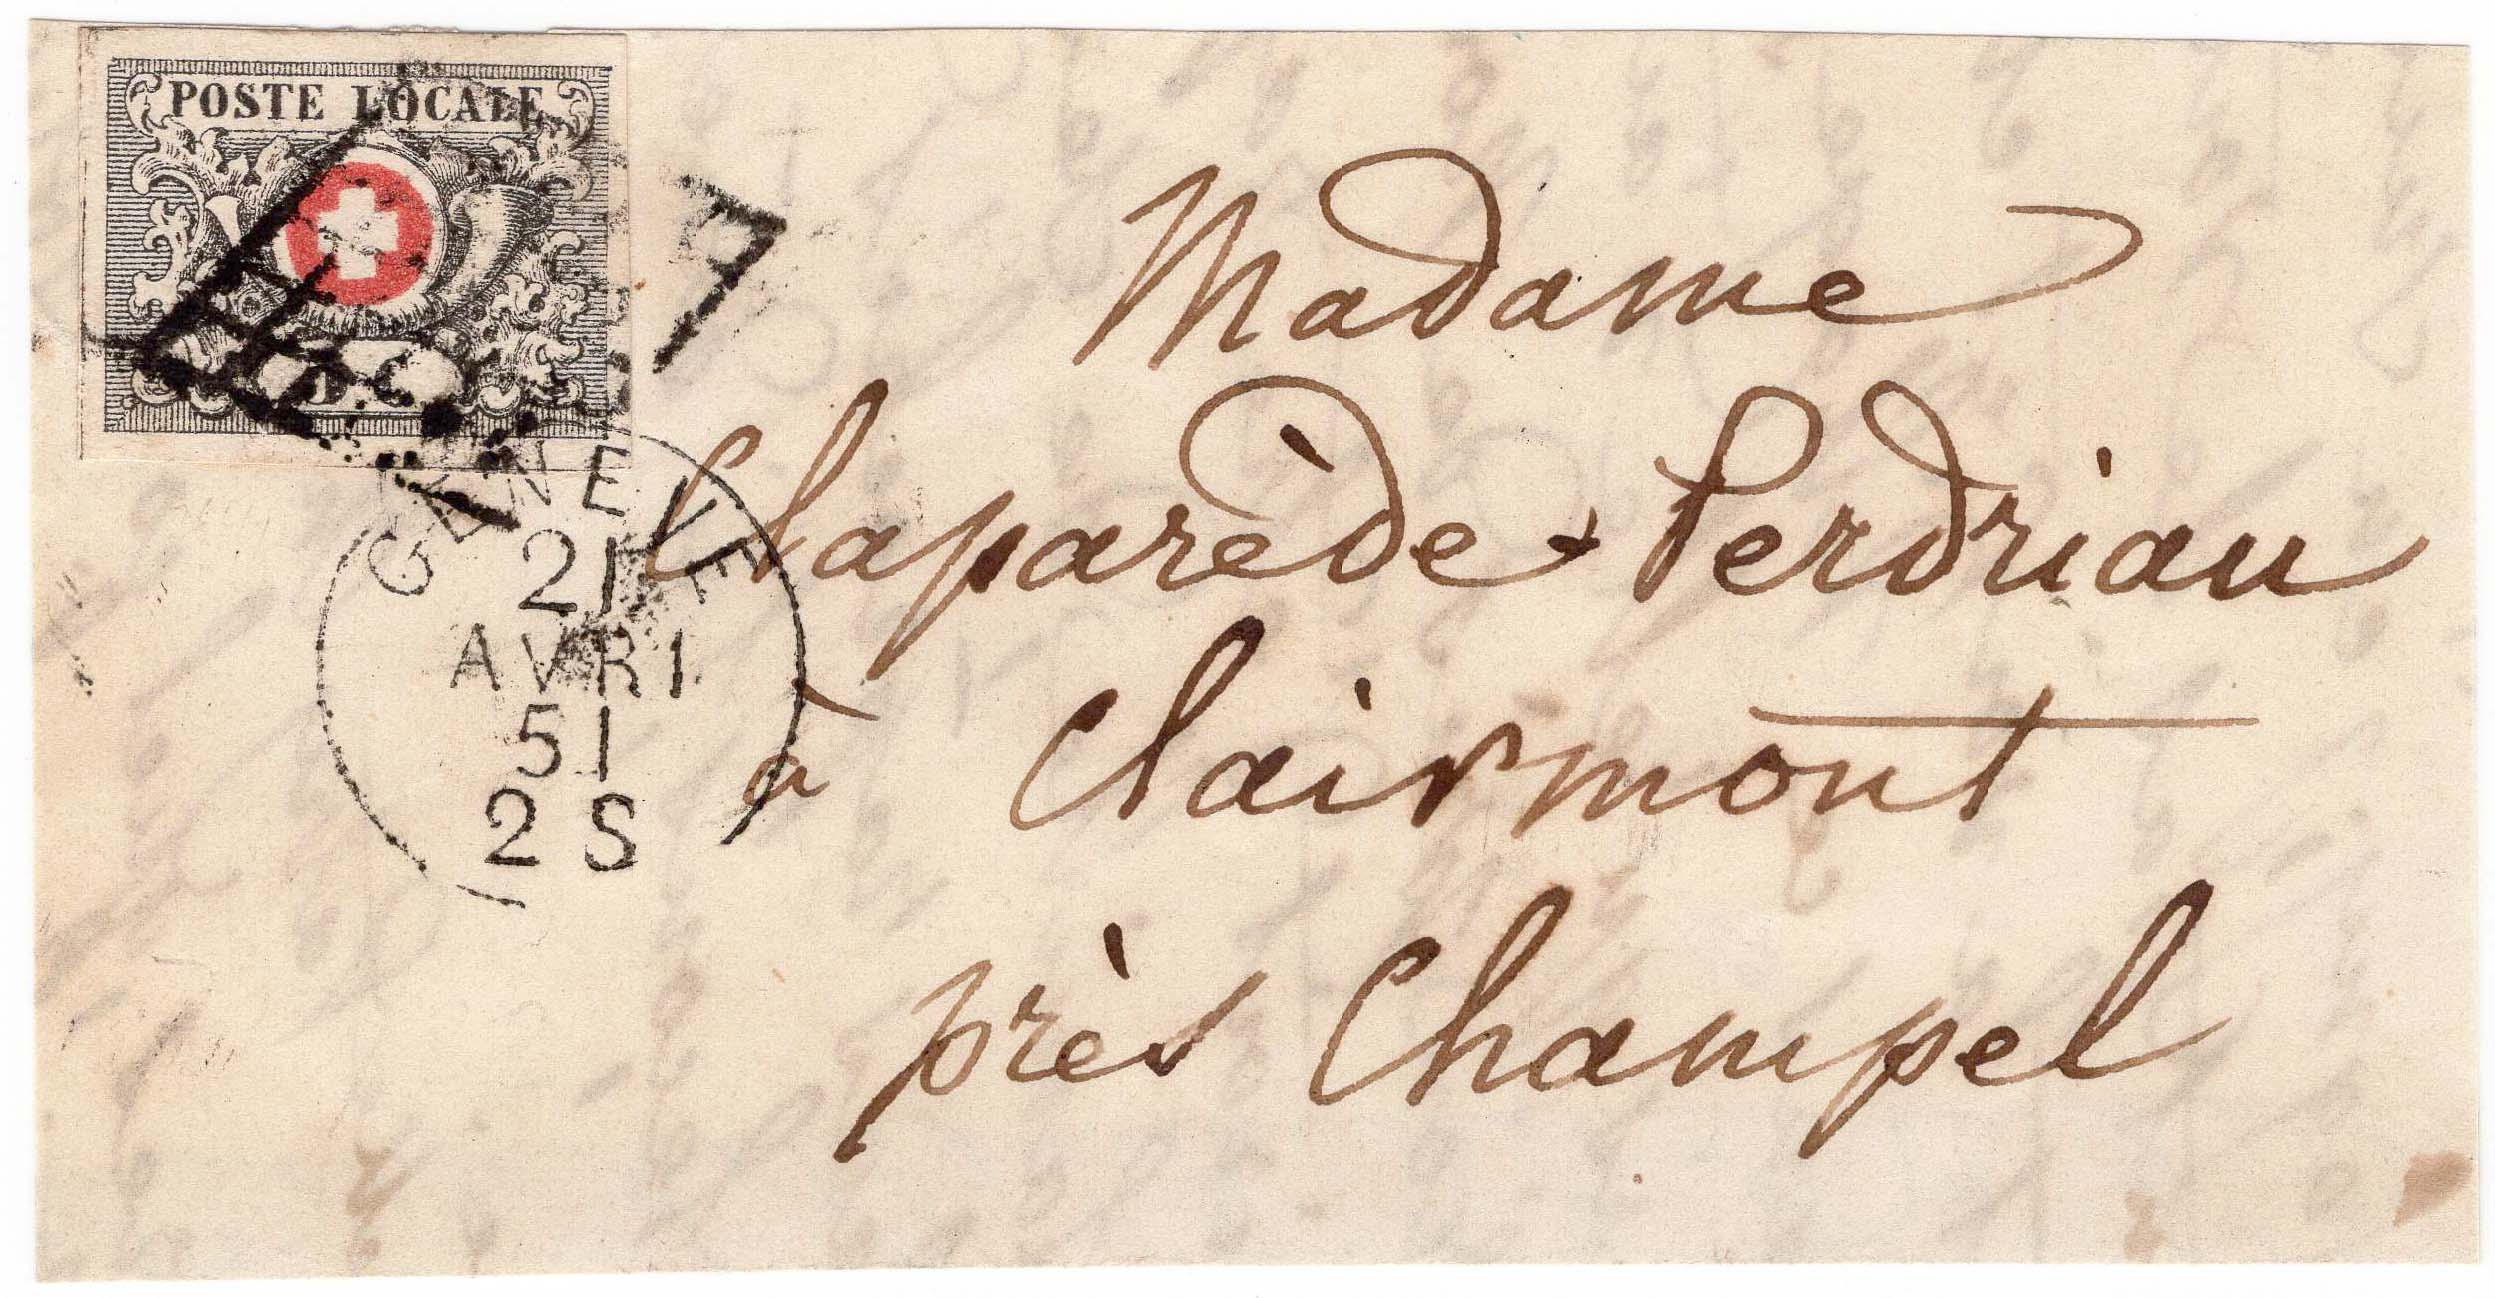 POSTE LOCALE
GENEVE
21
AVRI
51
2 S
Madame
Claparède-Perdriau
à Clairmont
près Champel